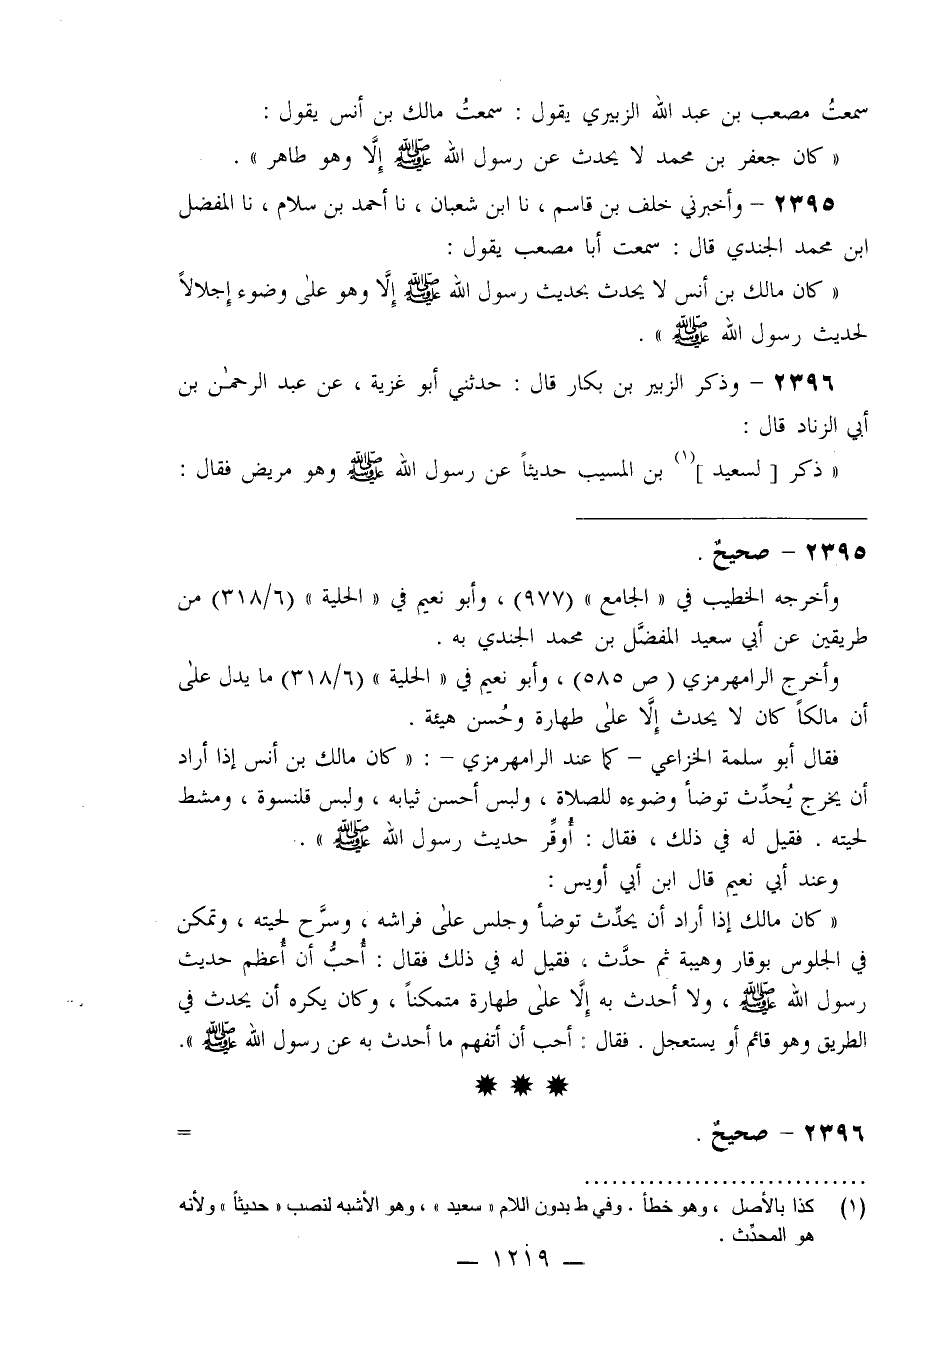 سمعتُ مصعب بن عبد الله الزبيري يقول : سمعتُ مالك بن أنس يقول :
« كان جعفر بن محمد لا يحدث عن رسول الله ﷺ إلَّا وهو طاهر » .
٢٣٩٥ – وأخبرني خلف بن قاسم ، نا ابن شعبان ، نا أحمد بن سلام ، نا المفضل
ابن محمد الجندي قال : سمعت أبا مصعب يقول :
« كان مالك بن أنس لا يحدث بحديث رسول الله ﷺ إلَّا وهو علىٰ وضوء إجلالاً
لحديث رسول الله ﷺ » .
٢٣٩٦ – وذكر الزبير بن بكار قال : حدثني أبو غزية ، عن عبد الرحمٰن بن
أبي الزناد قال :
« ذكر [ لسعيد ](١) بن المسيب حديثاً عن رسول الله ﷺ وهو مريض فقال :
٢٣٩٥ – صحيحٌ .
وأخرجه الخطيب في « الجامع » (٩٧٧) ، وأبو نعيم في « الحلية » (٣١٨/٦) من
طريقين عن أبي سعيد المفضَّل بن محمد الجندي به .
وأخرج الرامهرمزي ( ص ٥٨٥) ، وأبو نعيم في « الحلية » (٣١٨/٦) ما يدل علىٰ
أن مالكاً كان لا يحدث إلَّا علىٰ طهارة وحُسن هيئة .
فقال أبو سلمة الخزاعي – كما عند الرامهرمزي – : « كان مالك بن أنس إذا أراد
أن يخرج يُحدِّث توضأ وضوءه للصلاة ، ولبس أحسن ثيابه ، ولبس قلنسوة ، ومشط
لحيته . فقيل له في ذلك ، فقال : أُوقِّر حديث رسول الله ﷺ » .
وعند أبي نعيم قال ابن أبي أويس :
« كان مالك إذا أراد أن يحدِّث توضأ وجلس علىٰ فراشه ، وسرَّح لحيته ، وتمكن
في الجلوس بوقار وهيبة ثم حدَّث ، فقيل له في ذلك فقال : أُحبُّ أن أُعظم حديث
رسول الله ﷺ ، ولا أحدث به إلَّا علىٰ طهارة متمكناً ، وكان يكره أن يحدث في
الطريق وهو قائم أو يستعجل . فقال : أحب أن أتفهم ما أحدث به عن رسول الله ﷺ ».
✸ ✸ ✸
٢٣٩٦ – صحيحٌ . =
(١) كذا بالأصل ، وهو خطأ . وفي ط بدون اللام « سعيد » ، وهو الأشبه لنصب « حديثاً » ولأنه
هو المحدِّث .
— ١٢١٩ —